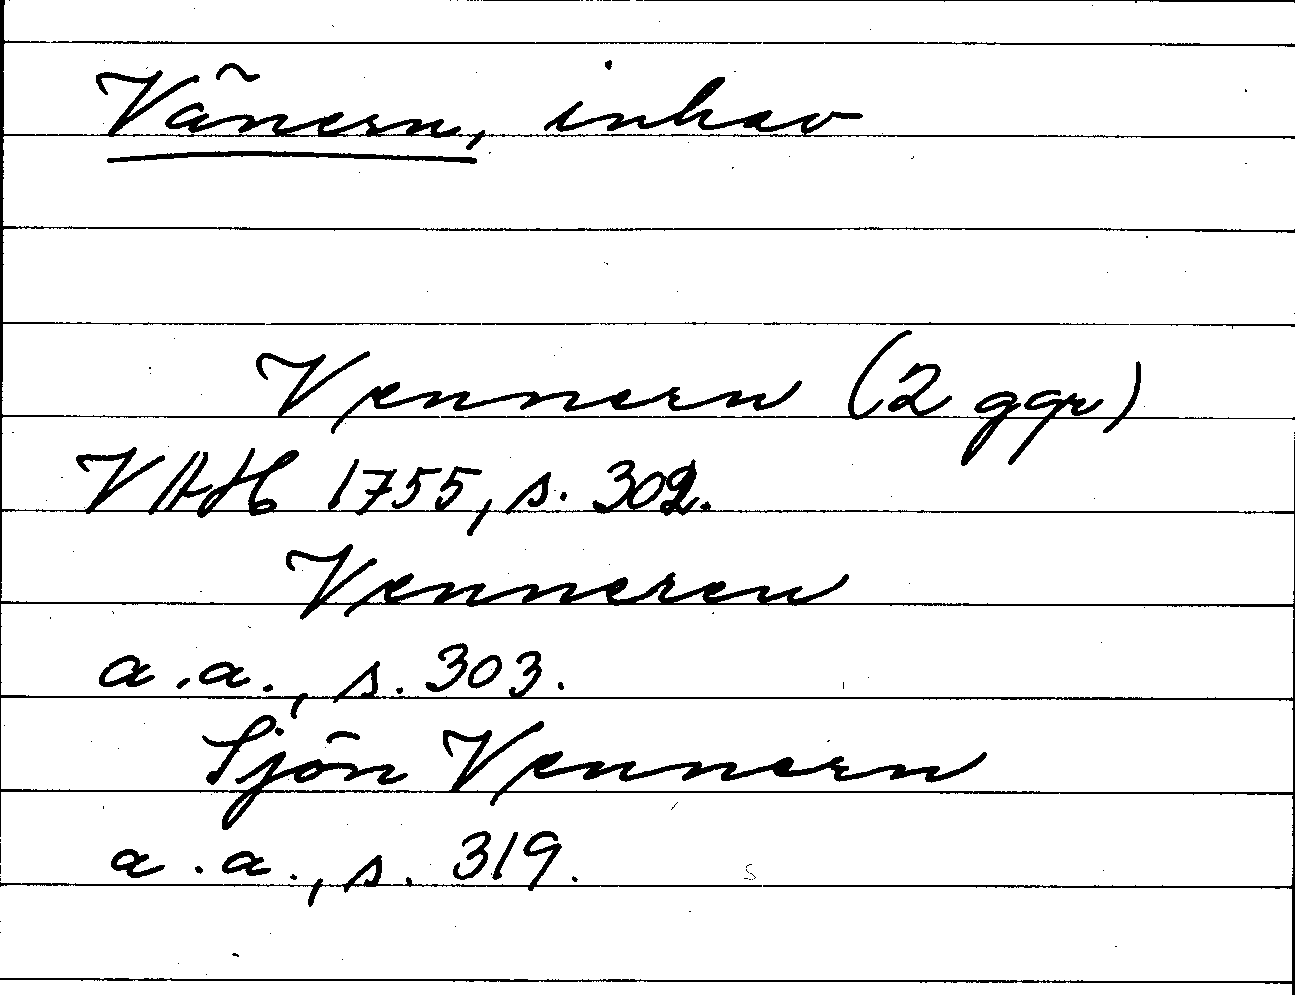 Vänern, inhav
Vennern (2 ggr)
VAH 1755, s. 302.
Venneren
a.a., s. 303.
Sjön Vennern
a.a., s. 319.